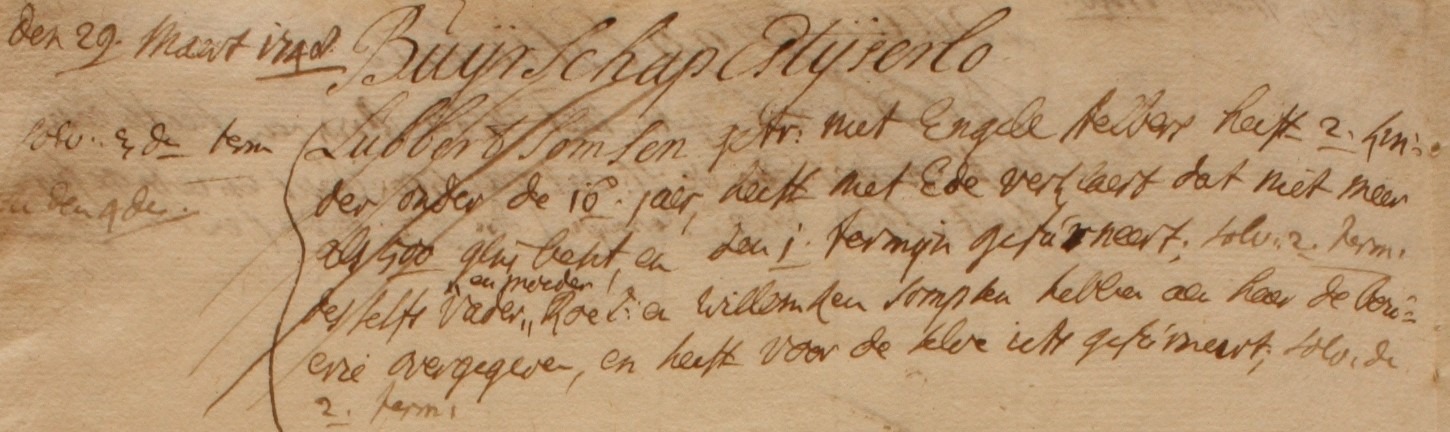 Den 29. Maert 1748. Buijrschap IJserlo
solv. 3 de term
den 4 de.
Lubbert Somsen get: met Engele Helbers heeft 2. kin-
der onder de 16. jaer, heeft met Ede verklaert dat niet meer
als 500 gls besit, en den 1. termijn gefurneert, solv. 2. term.
desselfs Vader, en moeder Roel: en Willemken Sompsen hebben aen haer de bou-
erie overgegeven, en heeft voor de selve iets gefurneert, solv. de
2. term.